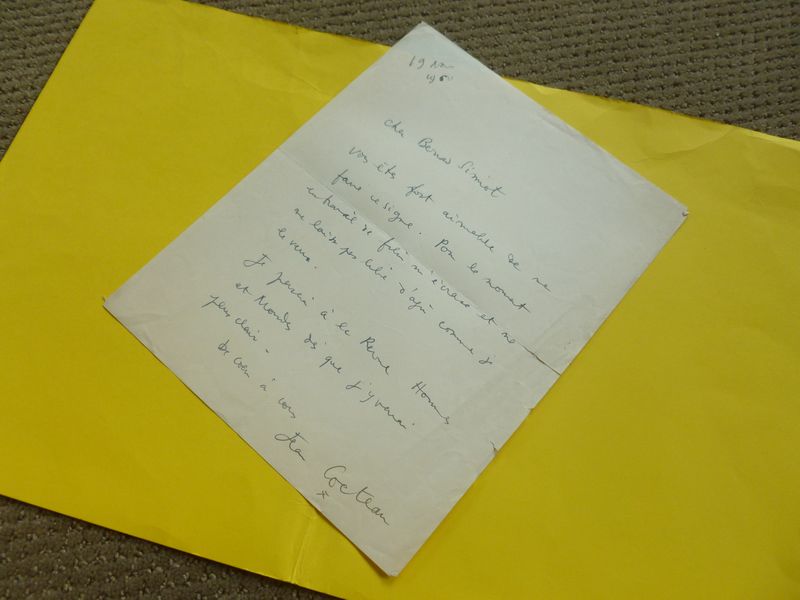 19
cher Simiot
vous êtes fort aimable de me
faire ce signe. Pour le moment
un travail de film m'écrase et ne
me laisse pas libre d'agir comme je
le veux.
Je pense à la Revue Hommes
et Mondes dès que j'y verrai
plus clair -
De cœur à vous
Jean Cocteau